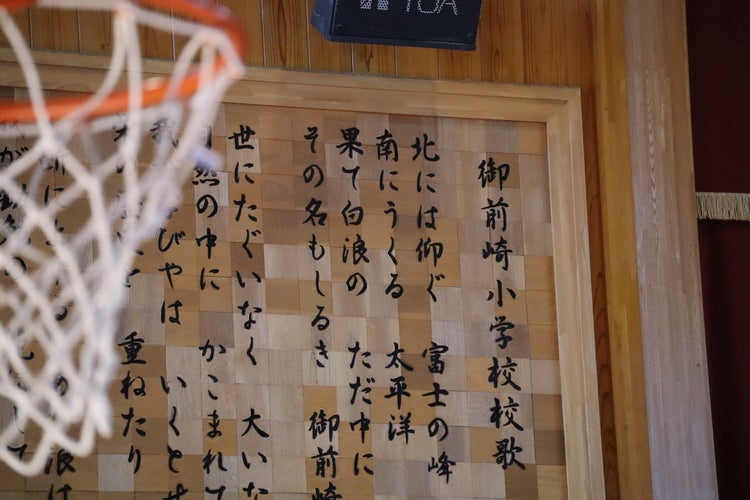 TOA
御前崎小学校校歌
北には仰ぐ 富士の峰
南にうくる 太平洋
果て白浪の ただ中に
その名もしるき 御前崎
世にたぐいなく 大いな
然の中に かこまれて
びやは いくとせ
重ねたり
浪は